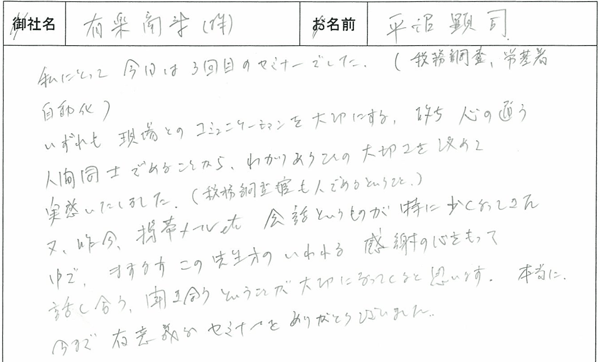 御社名 有楽商事(株) お名前 平沼顕司
私にとって今日は3回目のセミナーでした。(税務調査、営業者
自動化)
いずれも現場とのコミュニケーションを大切にする、 人の通う
人間同士であることから、わかりあうことの大切さを改めて
実感いたしました。(税務調査官も人であるということ。)
又、昨今、携帯メール 会話というものが特に少くなってきた
中で、ますますこの先生方のいわれる感謝の心をもって
話し合う、聞き合うということが大切になってくると思います。本当に、
今まで有意義なセミナーをありがとうございました。